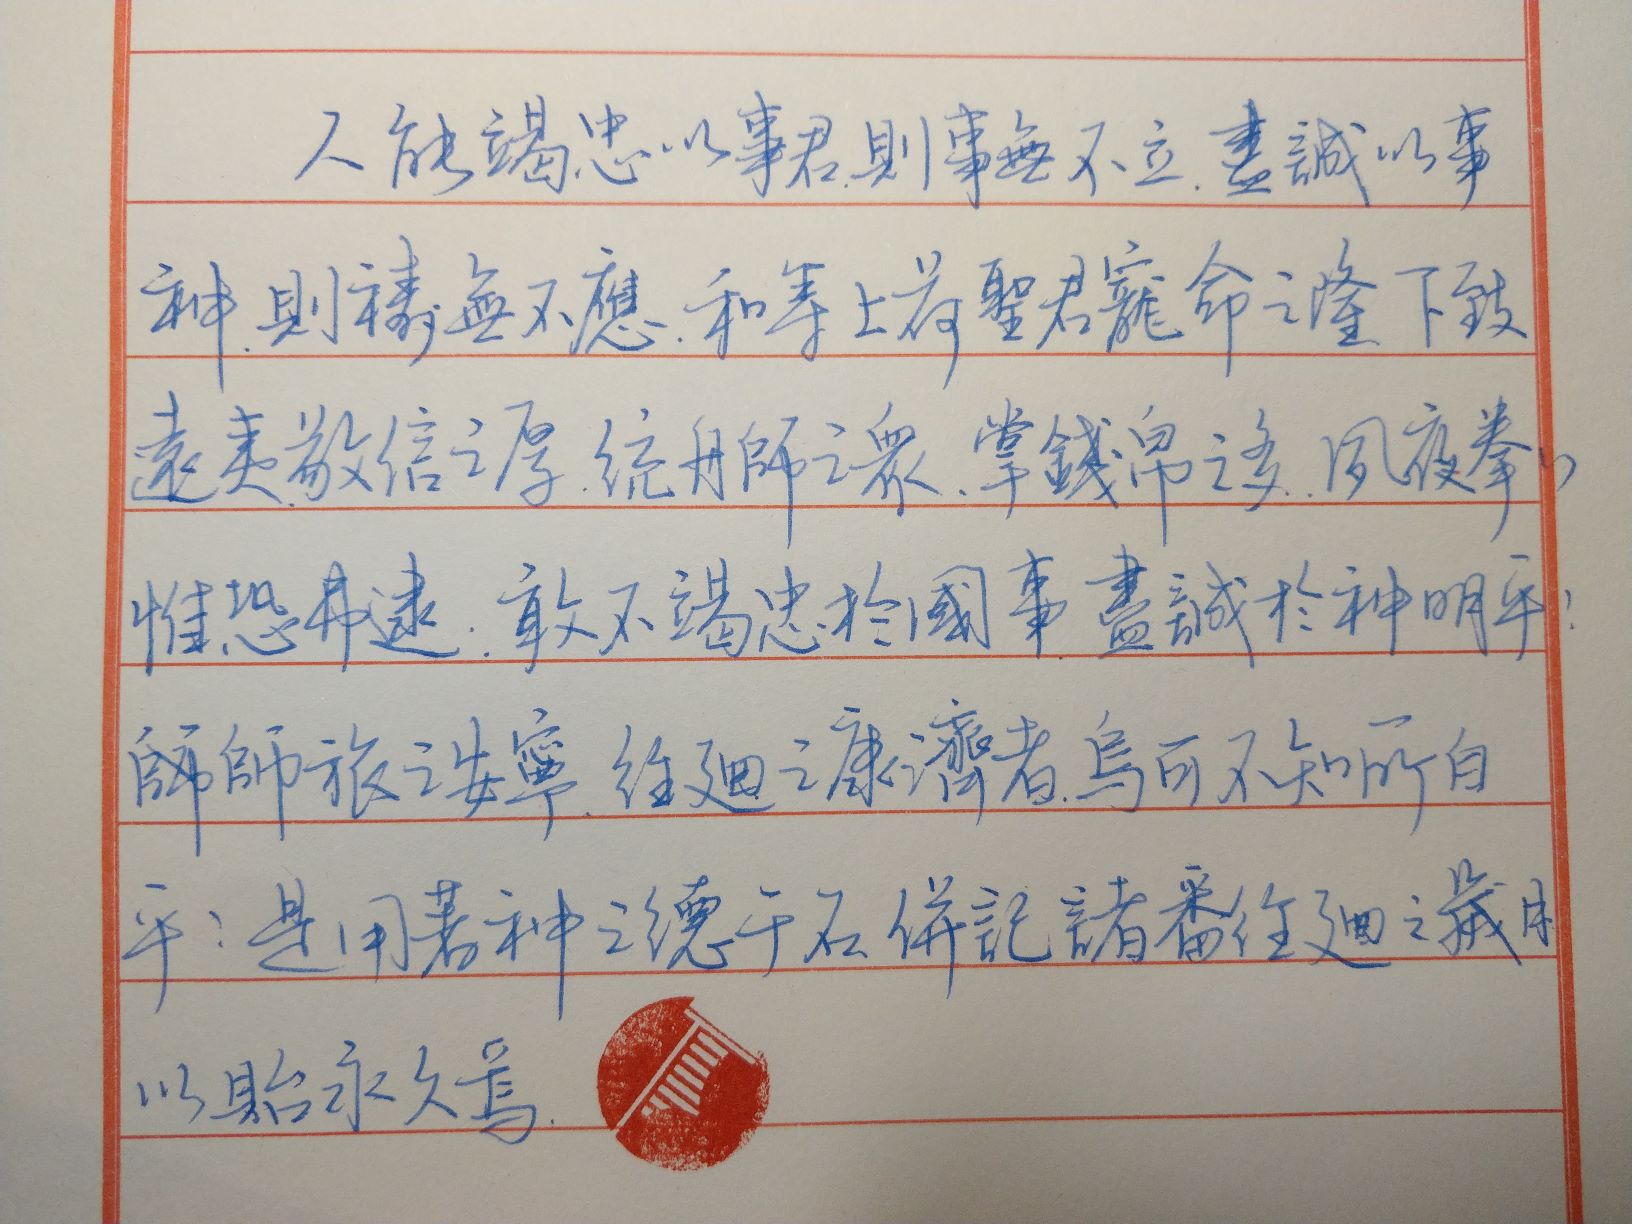 人能竭忠以事君,則事無不立,盡誠以事
神,則禱無不應.和等上荷聖君寵命之隆,下致
遠夷敬信之厚,統舟師之眾,掌錢帛之多,夙夜拳々
惟恐弗逮.敢不竭忠於國事,盡誠於神明乎?
師師旅之安寧,往廻之康濟者,烏可不知所自
乎?是用著神之德于石,併記諸番往廻之歲月
以貽永久焉.